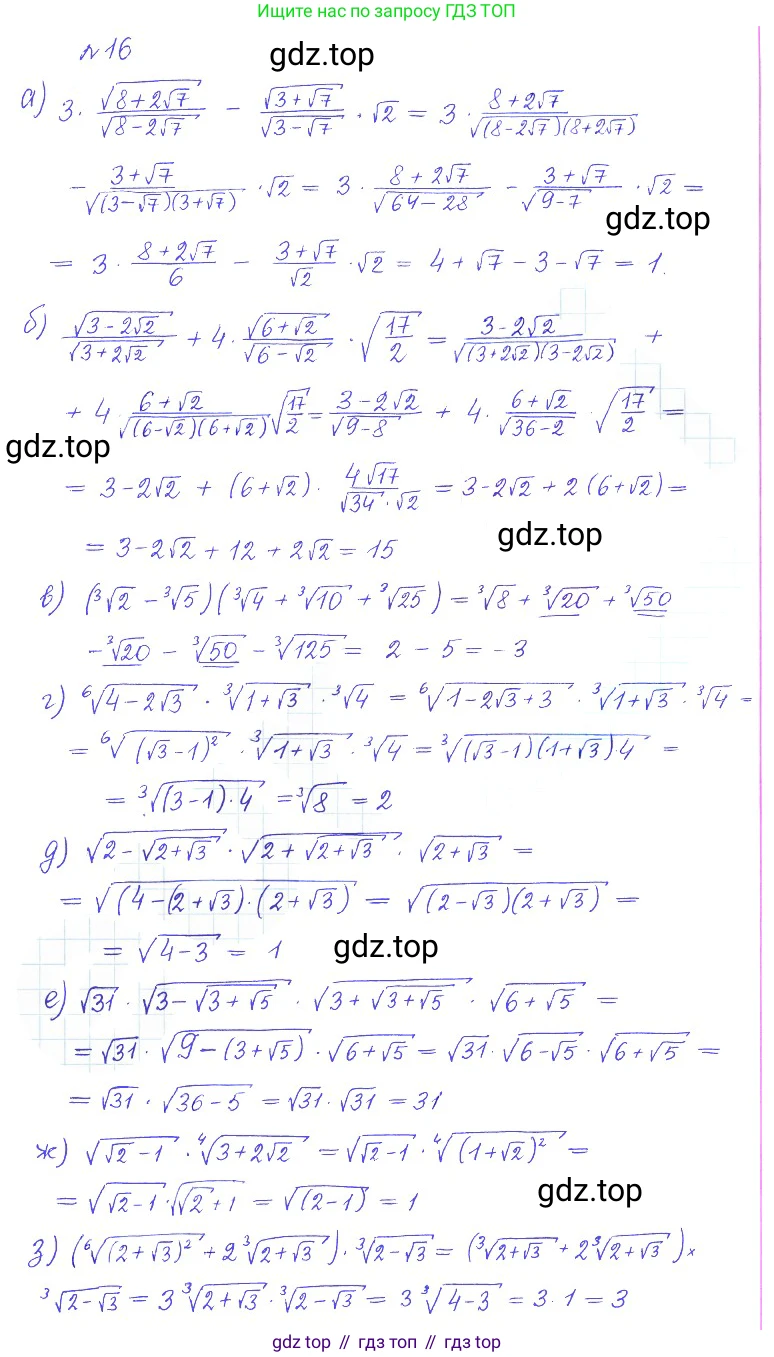 Ищите нас по запросу ГДЗ ТОП
№16
gdz.top
а) 3 · √(8+2√7)/√(8−2√7) − √(3+√7)/√(3−√7) · √2 = 3 · (8+2√7)/√((8−2√7)(8+2√7))
− (3+√7)/√((3−√7)(3+√7)) · √2 = 3 · (8+2√7)/√(64−28) − (3+√7)/√(9−7) · √2 =
gdz.top
= 3 · (8+2√7)/6 − (3+√7)/√2 · √2 = 4 + √7 − 3 − √7 = 1.
б) √(3−2√2)/√(3+2√2) + 4 · √(6+√2)/√(6−√2) · √(17/2) = (3−2√2)/√((3+2√2)(3−2√2)) +
+ 4 · (6+√2)/√((6−√2)(6+√2)) √(17/2) = (3−2√2)/√(9−8) + 4 · (6+√2)/√(36−2) · √(17/2) =
gdz.top
= 3−2√2 + (6+√2) · 4√17/(√34 · √2) = 3−2√2 + 2(6+√2) =
gdz.top
= 3−2√2 + 12 + 2√2 = 15
в) (∛2 − ∛5)(∛4 + ∛10 + ∛25) = ∛8 + ∛20 + ∛50
− ∛20 − ∛50 − ∛125 = 2 − 5 = −3
г) ⁶√(4−2√3) · ∛(1+√3) · ∛4 = ⁶√(1−2√3+3) · ∛(1+√3) · ∛4 =
= ⁶√((√3−1)²) · ∛(1+√3) · ∛4 = ∛((√3−1)(1+√3)4) =
= ∛((3−1)·4) = ∛8 = 2
д) √(2−√(2+√3)) · √(2+√(2+√3)) · √(2+√3) =
= √((4−(2+√3)·(2+√3)) = √((2−√3)(2+√3)) =
= √(4−3) = 1
gdz.top
е) √31 · √(3−√(3+√5)) · √(3+√(3+√5)) · √(6+√5) =
= √31 · √(9−(3+√5)) · √(6+√5) = √31 · √(6−√5) · √(6+√5) =
= √31 · √(36−5) = √31 · √31 = 31
ж) √(√2−1) · ⁴√(3+2√2) = √(√2−1) · ⁴√((1+√2)²) =
= √(√2−1) · √(√2+1) = √(2−1) = 1
gdz.top
з) (⁶√((2+√3)²) + 2∛(2+√3)) · ∛(2−√3) = (∛(2+√3) + 2∛(2+√3)) ×
∛(2−√3) = 3∛(2+√3) · ∛(2−√3) = 3∛(4−3) = 3·1 = 3
gdz.top // гдз топ // гдз.top